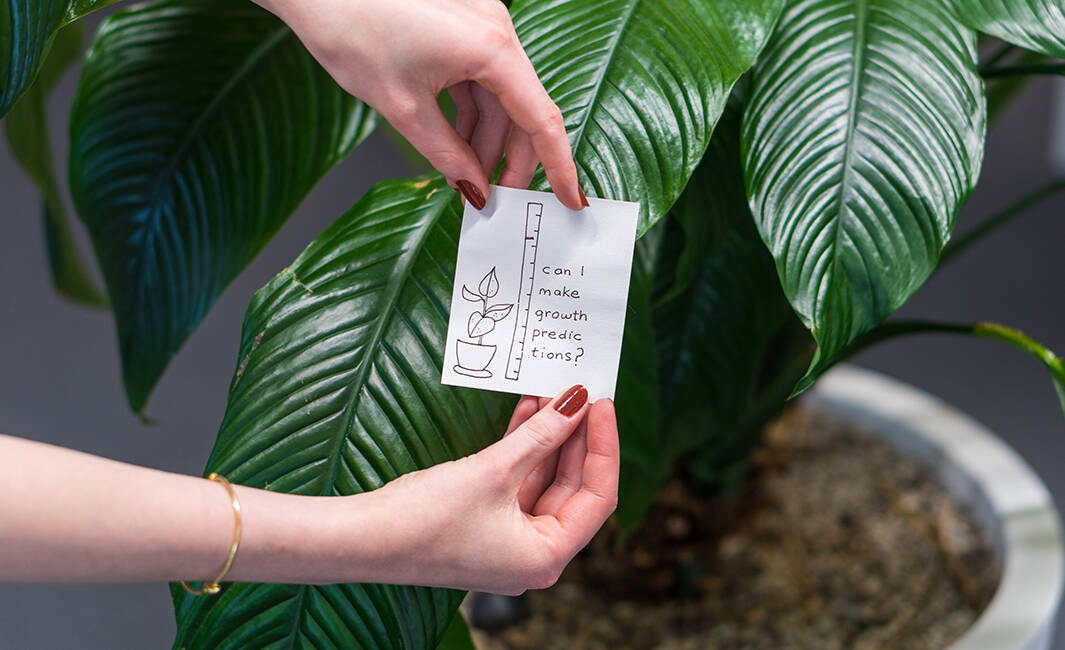 can I
make
growth
predic
tions?